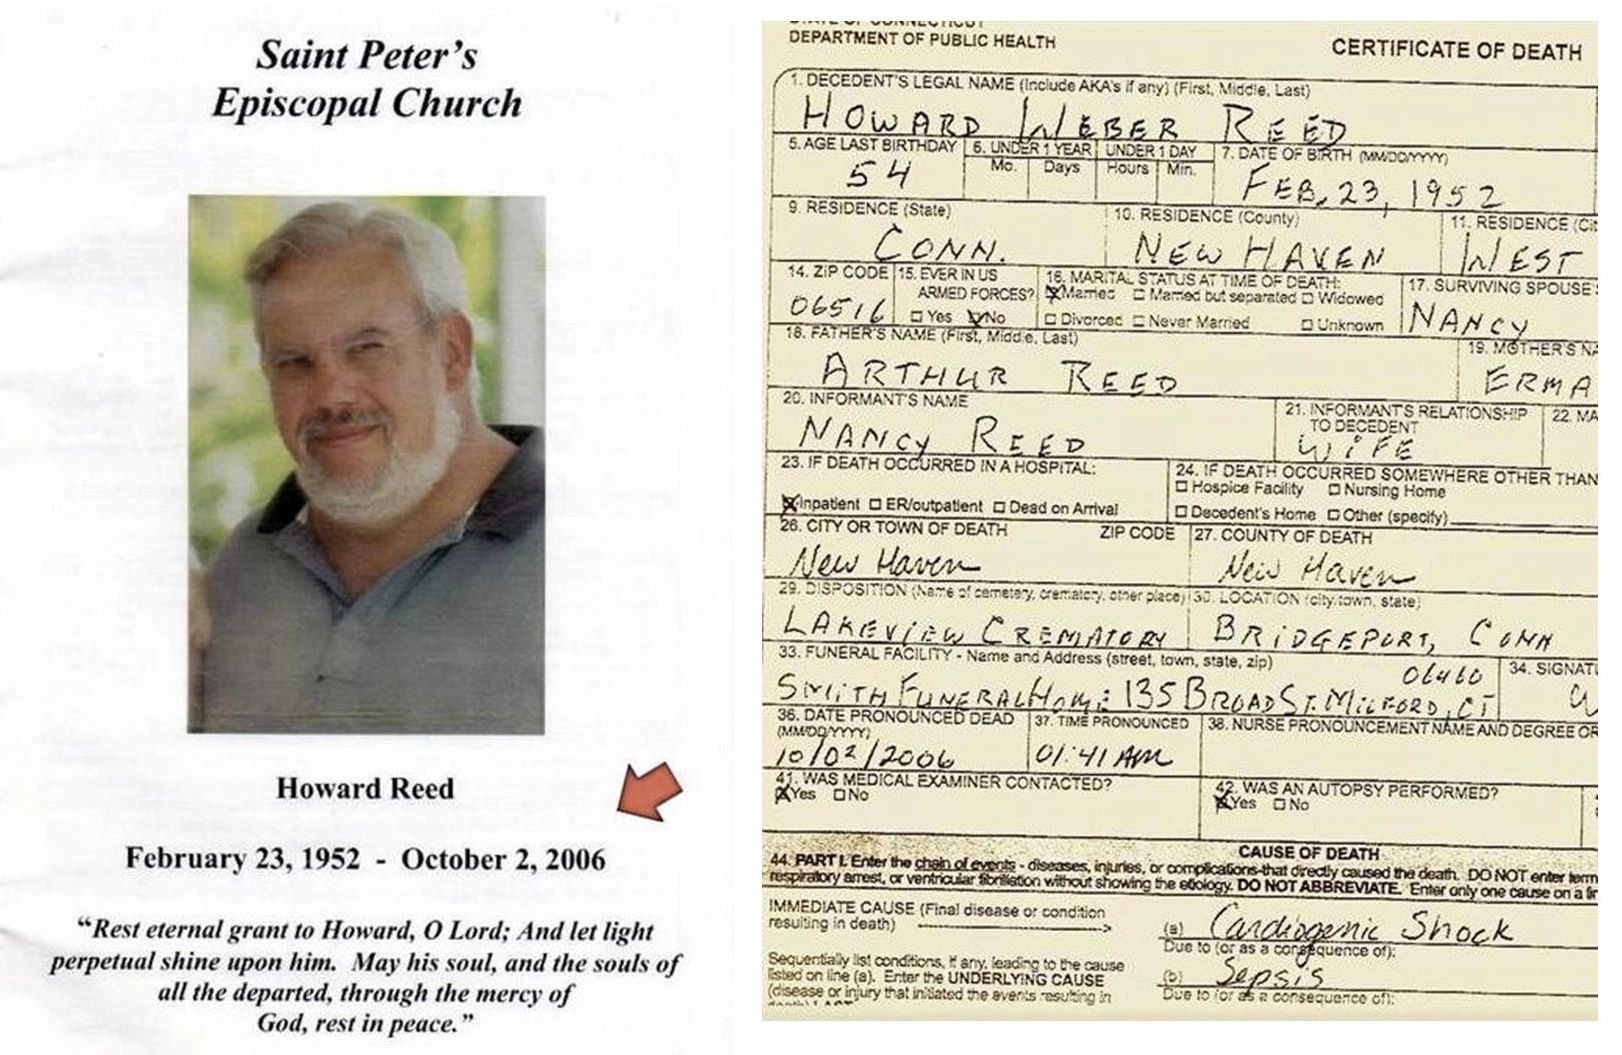 Saint Peter's
Episcopal Church
Howard Reed
February 23, 1952 - October 2, 2006
“Rest eternal grant to Howard, O Lord; And let light
perpetual shine upon him. May his soul, and the souls of
all the departed, through the mercy of
God, rest in peace.”
STATE OF CONNECTICUT
DEPARTMENT OF PUBLIC HEALTH
CERTIFICATE OF DEATH
1. DECEDENT'S LEGAL NAME (Include AKA's if any) (First, Middle, Last)
HOWARD WEBER REED
5. AGE LAST BIRTHDAY 6. UNDER 1 YEAR UNDER 1 DAY 7. DATE OF BIRTH (MM/DD/YYYY)
Mo. Days Hours Min.
54 FEB, 23, 1952
9. RESIDENCE (State) 10. RESIDENCE (County) 11. RESIDENCE (Cit
CONN. NEW HAVEN WEST
14. ZIP CODE 15. EVER IN US 16. MARITAL STATUS AT TIME OF DEATH: 17. SURVIVING SPOUSE'S
ARMED FORCES? Married Married but separated Widowed
06516 Yes No Divorced Never Married Unknown NANCY
18. FATHER'S NAME (First, Middle, Last) 19. MOTHER'S NA
ARTHUR REED ERMA
20. INFORMANT'S NAME 21. INFORMANT'S RELATIONSHIP 22. MA
TO DECEDENT
NANCY REED WIFE
23. IF DEATH OCCURRED IN A HOSPITAL: 24. IF DEATH OCCURRED SOMEWHERE OTHER THAN
Hospice Facility Nursing Home
Inpatient ER/outpatient Dead on Arrival Decedent's Home Other (specify)
26. CITY OR TOWN OF DEATH ZIP CODE 27. COUNTY OF DEATH
New Haven New Haven
29. DISPOSITION (Name of cemetery, crematory, other place) 30. LOCATION (city/town, state)
LAKEVIEW CREMATORY BRIDGEPORT, CONN
33. FUNERAL FACILITY - Name and Address (street, town, state, zip) 06460 34. SIGNATU
SMITH FUNERAL HOME 135 BROAD ST. MILFORD, CT
36. DATE PRONOUNCED DEAD 37. TIME PRONOUNCED 38. NURSE PRONOUNCEMENT NAME AND DEGREE OR
(MM/DD/YYYY)
10/02/2006 01:41 AM
41. WAS MEDICAL EXAMINER CONTACTED? 42. WAS AN AUTOPSY PERFORMED?
Yes No Yes No
CAUSE OF DEATH
44. PART I. Enter the chain of events - diseases, injuries, or complications-that directly caused the death. DO NOT enter term
respiratory arrest, or ventricular fibrillation without showing the etiology. DO NOT ABBREVIATE. Enter only one cause on a li
IMMEDIATE CAUSE (Final disease or condition
resulting in death) (a) Cardiogenic Shock
Due to (or as a consequence of):
Sequentially list conditions, if any, leading to the cause
listed on line (a). Enter the UNDERLYING CAUSE (b) Sepsis
(disease or injury that initiated the events resulting in Due to (or as a consequence of):